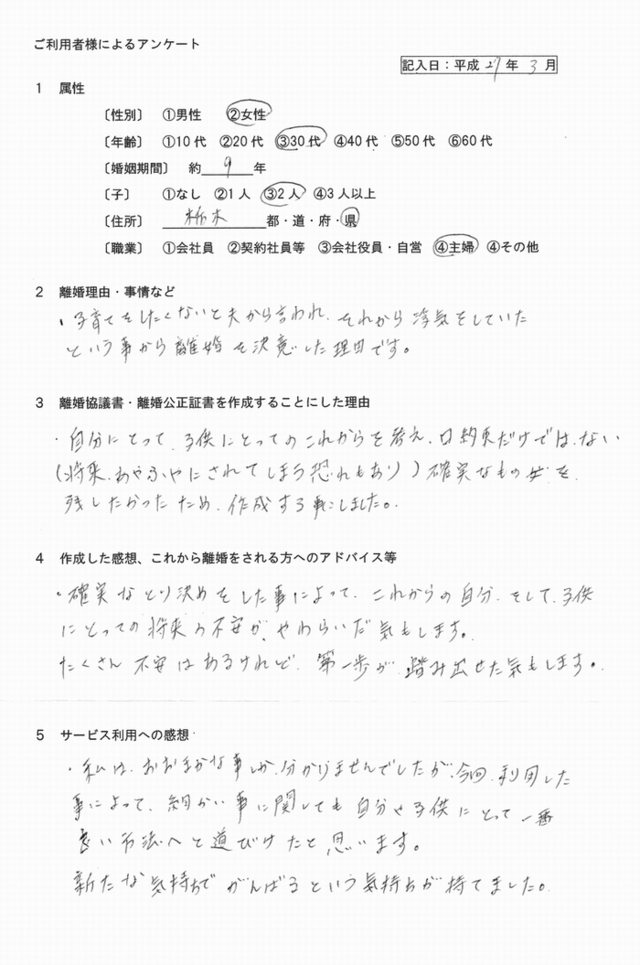 ご利用者様によるアンケート
記入日：平成 27 年 3 月
1 属性
〔性別〕 ①男性 ②女性
〔年齢〕 ①10代 ②20代 ③30代 ④40代 ⑤50代 ⑥60代
〔婚姻期間〕 約 9 年
〔子〕 ①なし ②1人 ③2人 ④3人以上
〔住所〕 栃木 都・道・府・県
〔職業〕 ①会社員 ②契約社員等 ③会社役員・自営 ④主婦 ④その他
2 離婚理由・事情など
・子育てをしたくないと夫から言われ、それから浮気をしていた
という事から離婚を決意した理由です。
3 離婚協議書・離婚公正証書を作成することにした理由
・自分にとって、子供にとってのこれからを考え、口約束だけではない
(将来、あやふやにされてしまう恐れもあり)確実なものを
残したかったため、作成する事にしました。
4 作成した感想、これから離婚をされる方へのアドバイス等
・確実なとり決めをした事によって、これからの自分、そして、子供
にとっての将来の不安が、やわらいだ気もします。
たくさん不安はあるけれど、第一歩が踏み出せた気もします。
5 サービス利用への感想
・私は、おおまかな事しか、分かりませんでしたが、今回、利用した
事によって、細かい事に関しても自分や子供にとって一番
良い方法へと道びけたと思います。
新たな気持ちでがんばるという気持ちが持てました。